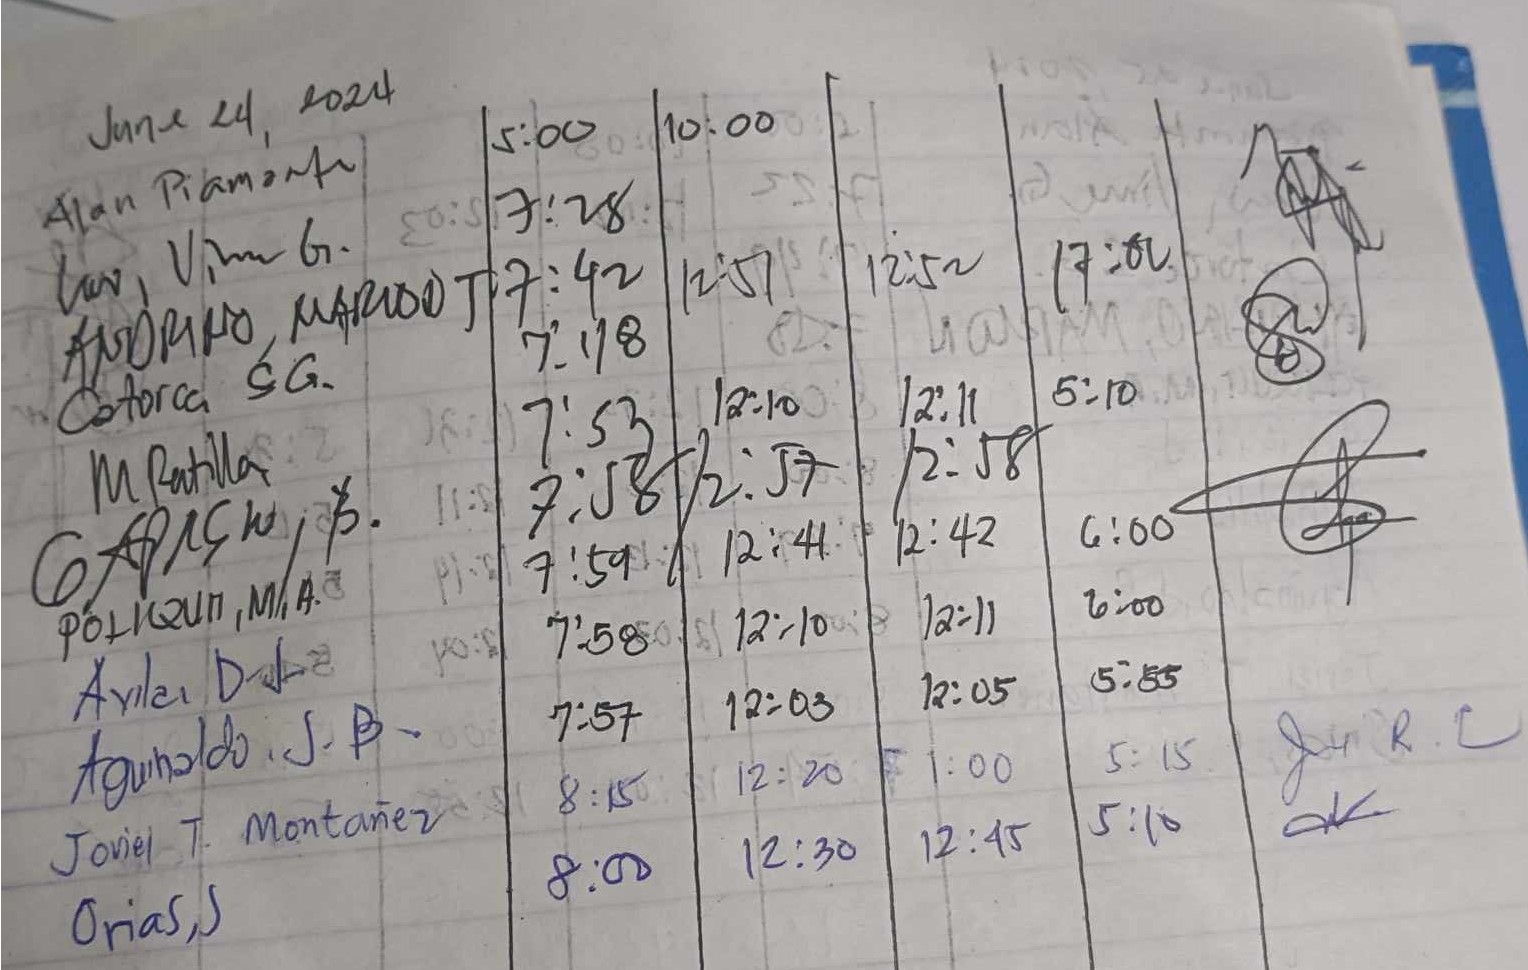 June 24, 2024
Alan Piamonte 5:00 10:00
Vim G. 7:28
ANDRINO, MARLOO J 7:42 12:51 12:52 17:02
Catorca SG. 7:48
M Ratilla 7:53 12:10 12:11 5:10
B. 7:58 12:57 12:58
M.A. 7:59 12:41 12:42 6:00
Aviles D. 7:58 12:10 12:11 6:00
Aguinaldo. J. B. 7:57 12:03 12:05 5:55
Joniel T. Montañez 8:15 12:20 1:00 5:15 R.
Orias, J 8:00 12:30 12:45 5:10